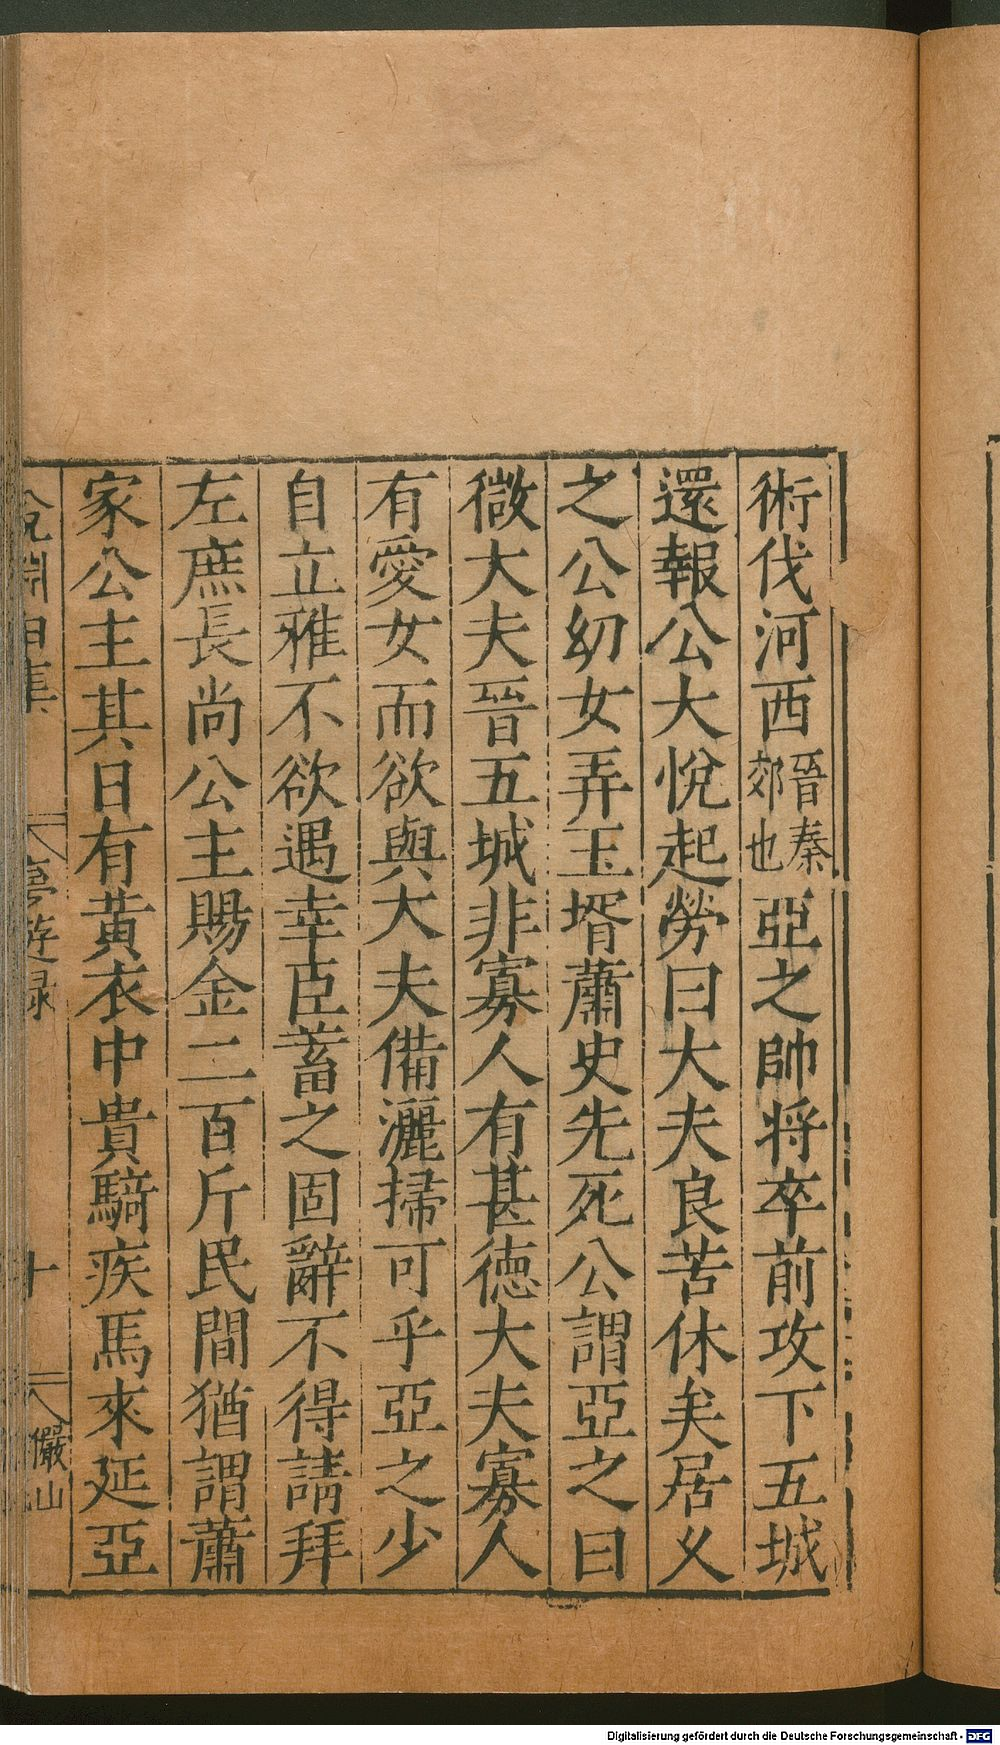 術伐河西晉秦郊也亞之帥將卒前攻下五城
還報公大悅起勞曰大夫良苦休矣居乆
之公幼女弄玉壻蕭史先死公謂亞之曰
微大夫晉五城非寡人有甚德大夫寡人
有愛女而欲與大夫備灑掃可乎亞之少
自立雅不欲遇幸臣蓄之固辭不得請拜
左庶長尚公主賜金二百斤民間猶謂蕭
家公主其日有黃衣中貴騎疾馬來延亞
夢遊録
十
儼山
Digitalisierung gefördert durch die Deutsche Forschungsgemeinschaft - DFG